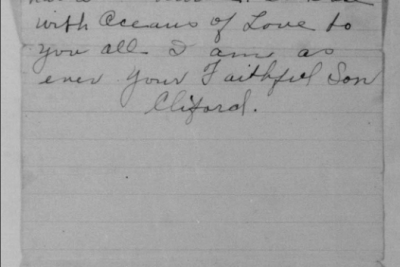 with Oceans of Love to
you all I am as
ever your Faithful Son
Cliford.